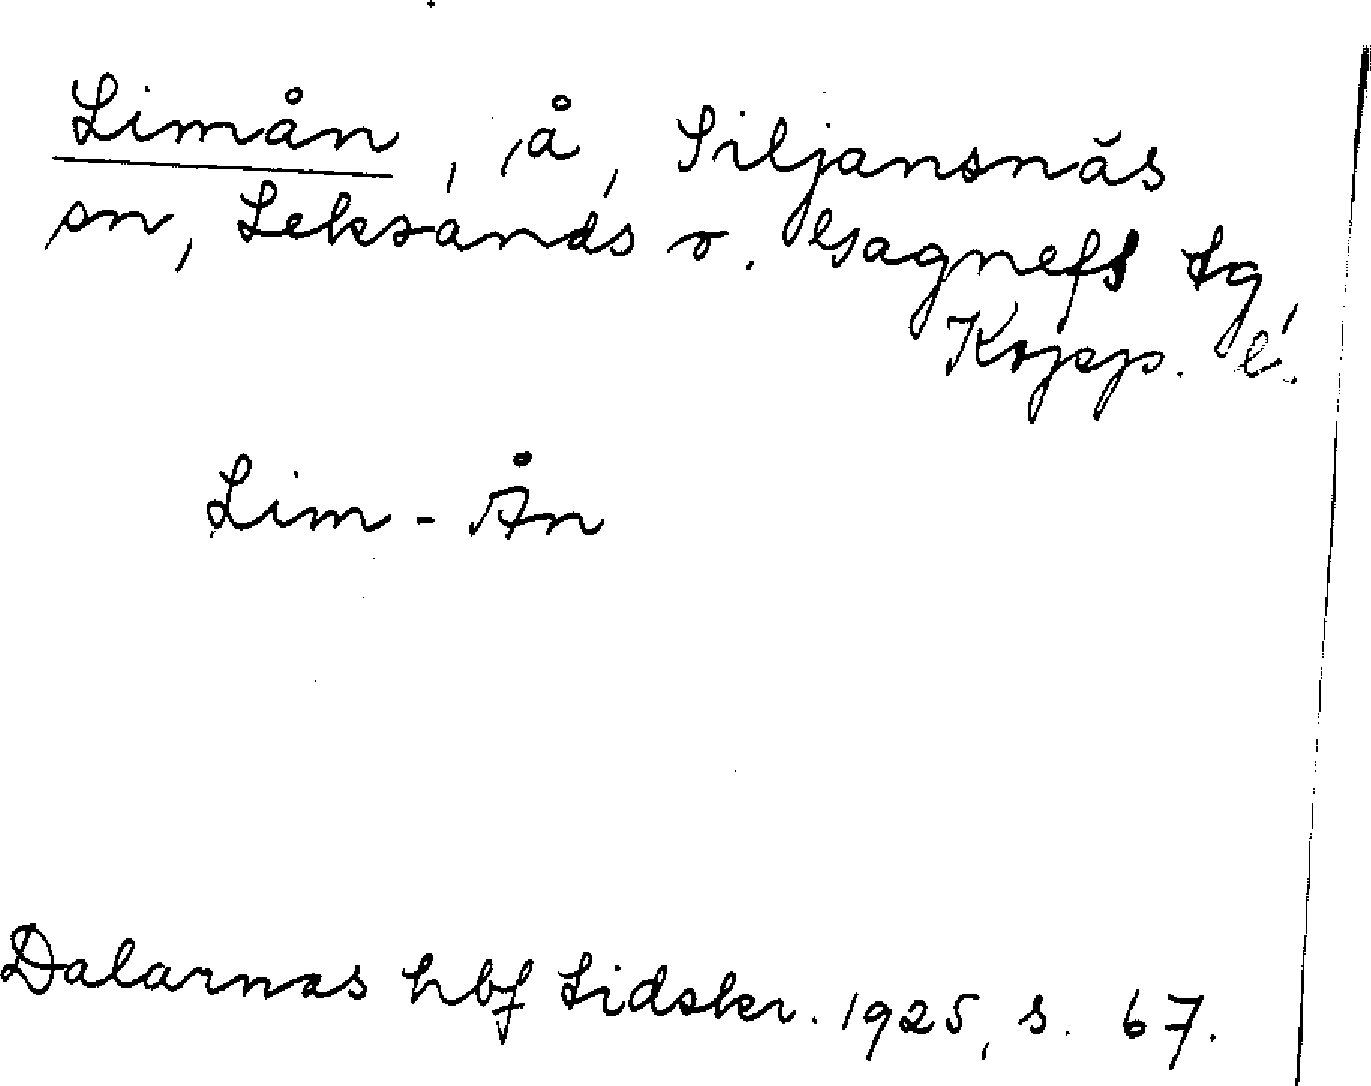 Limån, å, Siljansnäs
sn, Leksands o. Gagnefs tg
Kopp. l.
Lim-Ån
Dalarnas hbf Tidskr. 1925, s. 67.